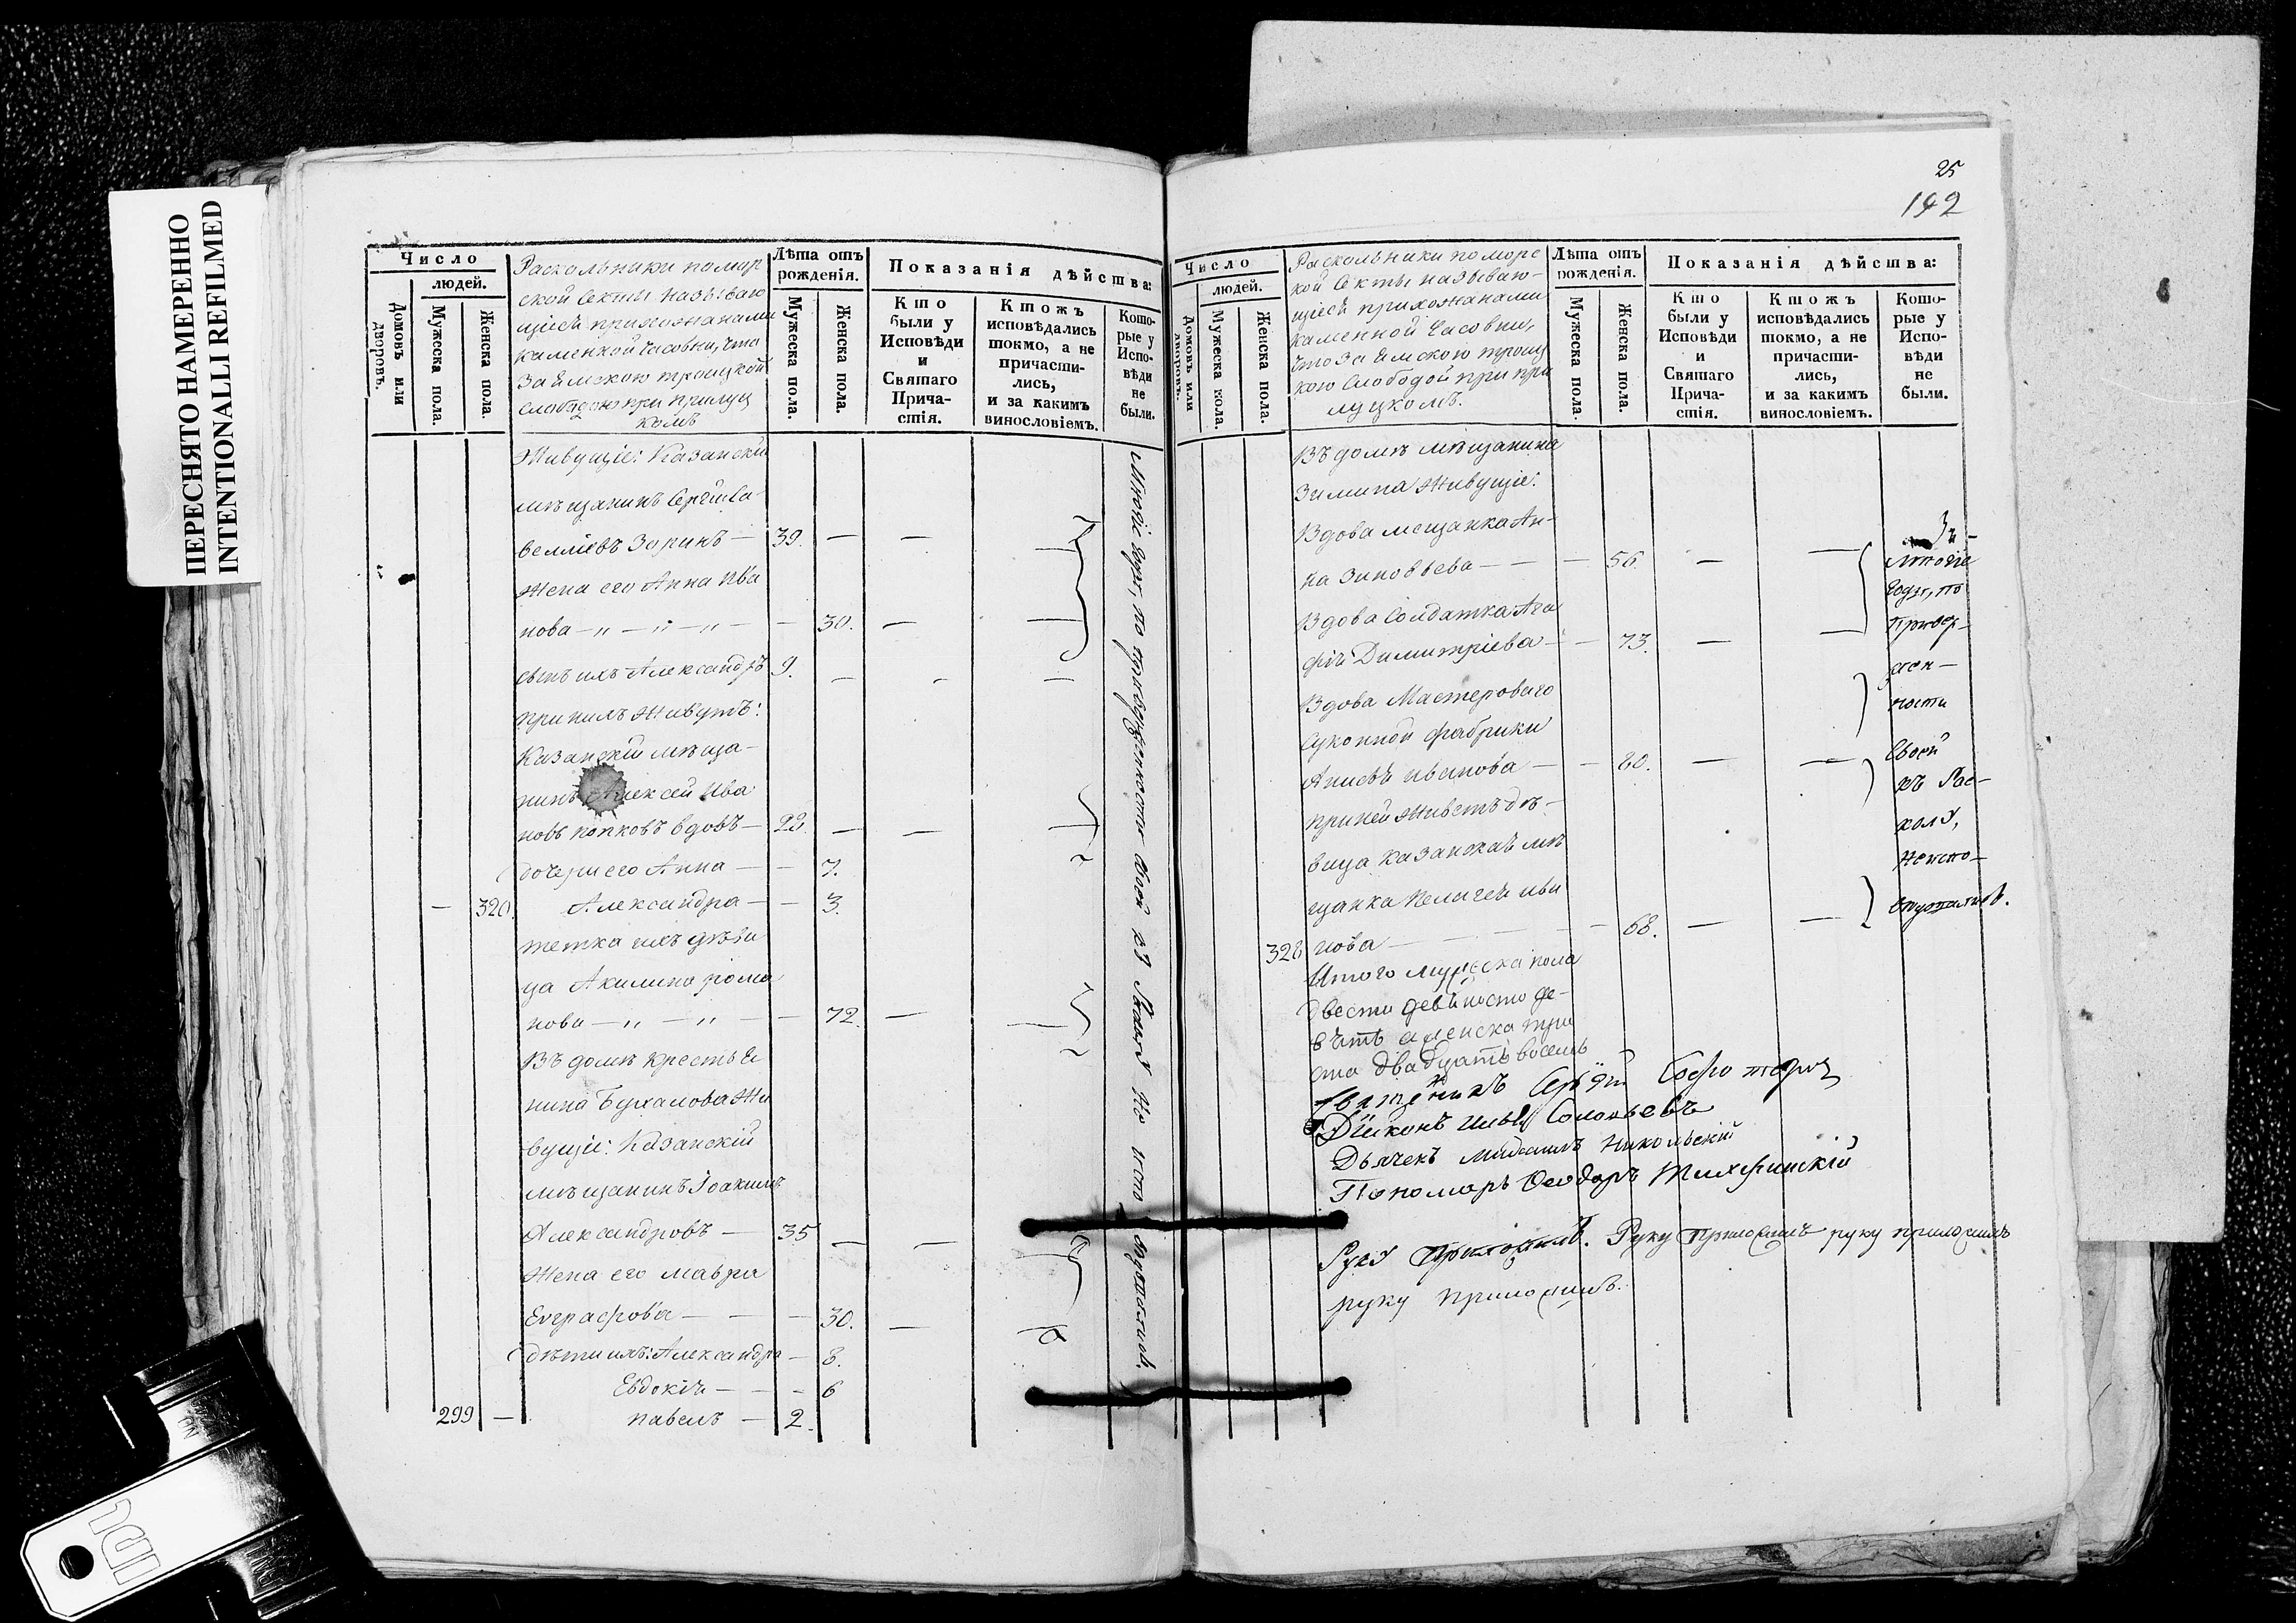 ПЕРЕСНЯТО НАМЕРЕННО
INTENTIONALLI REFILMED
Число
людей.
Домовъ или дворовъ.
Мужеска пола.
Женска пола.
Раскольники помор
ской Секты называю
щіеся прихожанами
каменной Часовни, что
за Ямскою троицкой
Слободою при Прилуц
комъ
Лѣта отъ рожденія.
Мужеска пола.
Женска пола.
Показанія дѣйства:
Кто были у Исповѣди и Святаго Прича-стія.
Ктожъ исповѣдались токмо, а не причасти-лись, и за какимъ винословіемъ.
Кото-рые у Испо-вѣди не были.
Живущіе: Казанскій
мѣщанинъ Сергій Са
веліевъ Заринъ — 39. — —
Жена его Анна Ива
нова — „ — „ — „ — — 30. — —
сынъ ихъ Александръ 9. — — —
при нихъ живутъ:
Казанскій мѣща-
нинъ Алексей Ива
новъ Попковъ вдовъ — 28. — — —
дочери его Анна — — 7.
— 320. Александра — — 3.
тетка ихъ дѣви
ца Акилина рома
нова — „ — „ — — 72. — —
Въ домѣ крестья
нина Буханова Жи
вущіе: Казанскій
мѣщанинъ Іоакимъ
Александровъ — 35 — — —
Жена его Мавра
Евграфова — — — 30. —
дѣти ихъ: Александра — 8.
Евдокія — — — 6
299 — Павелъ — 2.
Многіе годы, по приверженности своей къ Расколу не исповѣдывались.
25
192
Число
людей.
Домовъ или дворовъ.
Мужеска пола.
Женска пола.
Раскольники поморс
кой Секты называю-
щіеся прихожанами
каменной Часовни,
что за Ямскою троиц
кою Слободой при При
луцкомъ.
Лѣта отъ рожденія.
Мужеска пола.
Женска пола.
Показанія дѣйства:
Кто были у Исповѣди и Святаго Прича-стія.
Ктожъ исповѣдались токмо, а не причасти-лись, и за какимъ винословіемъ.
Кото-рые у Испо-вѣди не были.
Въ домѣ мѣщанина
Зимина Живущіе:
Вдова мещанка Ан-
на Зиновьева — — — 56. — —
Вдова Солдатка Ага
фія Димитріева — — 73. — —
Вдова Мастероваго
Суконной фабрики
Анисья иванова — — 80. — —
при ней Живетъ дѣ-
вица казанская мѣ
щанка Пелагея ива
328 нова — — — — 68. — —
Многіе
годы, по
Привер-
жен-
ности
Своей
къ Рас-
колу,
Итого мужеска пола
двести девяносто де-
вять а женска три
ста двадцать восемь
Діаконъ Илья Соловьевъ
Дьячекъ Михаилъ Никольскій
Пономарь Ѳеодоръ Тихвинскій
Руку приложилъ. Руку Приложилъ руку приложилъ
руку приложилъ.